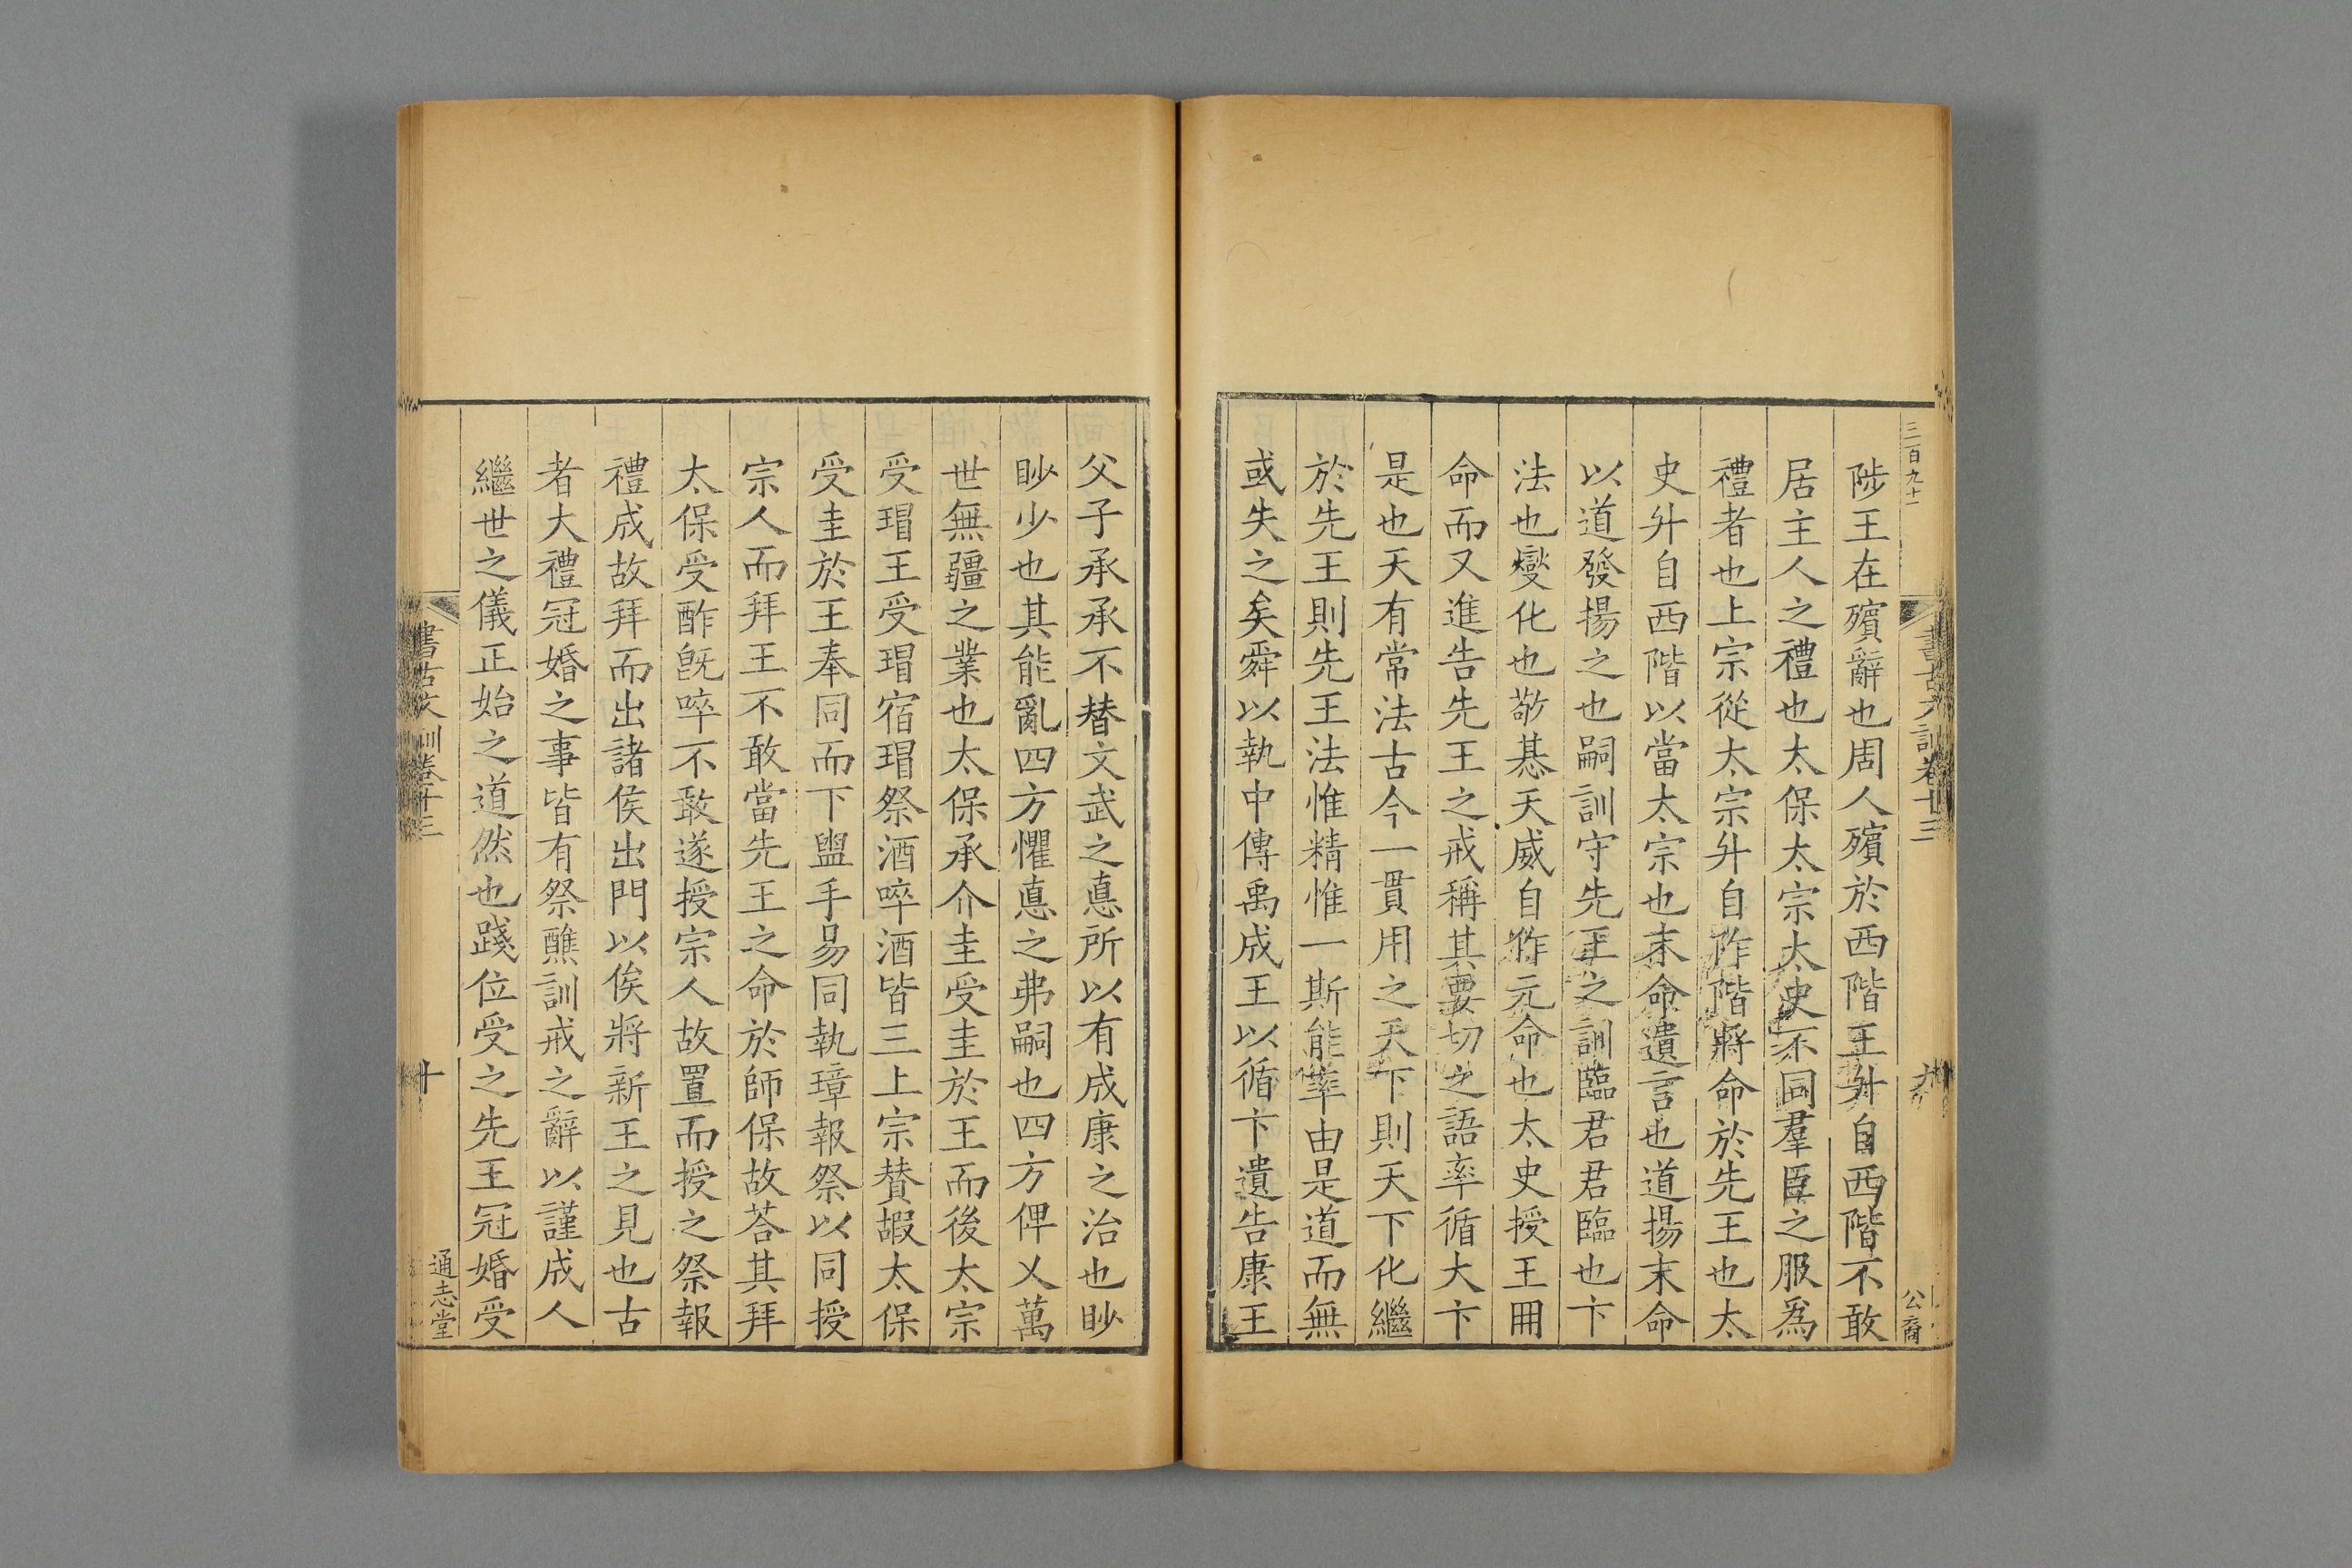 三百九十一
書古文訓卷十三
九
公裔
陟王在殯辭也周人殯於西階王升自西階不敢
居主人之禮也太保太宗太史不同羣臣之服爲
禮者也上宗從太宗升自阼階將命於先王也太
史升自西階以當太宗也末命遺言也道揚末命
以道發揚之也嗣訓守先王之訓臨君君臨也卞
法也燮化也敬惎天威自作元命也太史授王冊
命而又進告先王之戒稱其要切之語率循大卞
是也天有常法古今一貫用之天下則天下化繼
於先王則先王法惟精惟一斯能率由是道而無
或失之矣舜以執中傳禹成王以循卞遺告康王
父子承承不替文武之悳所以有成康之治也眇
眇少也其能亂四方懼悳之弗嗣也四方俾乂萬
世無疆之業也太保承介圭受圭於王而後太宗
受瑁王受瑁宿瑁祭酒啐酒皆三上宗賛嘏太保
受圭於王奉同而下盥手易同執璋報祭以同授
宗人而拜王不敢當先王之命於師保故荅其拜
太保受酢旣啐不敢遂授宗人故置而授之祭報
禮成故拜而出諸侯出門以俟將新王之見也古
者大禮冠婚之事皆有祭醮訓戒之辭以謹成人
繼世之儀正始之道然也踐位受之先王冠婚受
書古文訓卷十三
十
通志堂